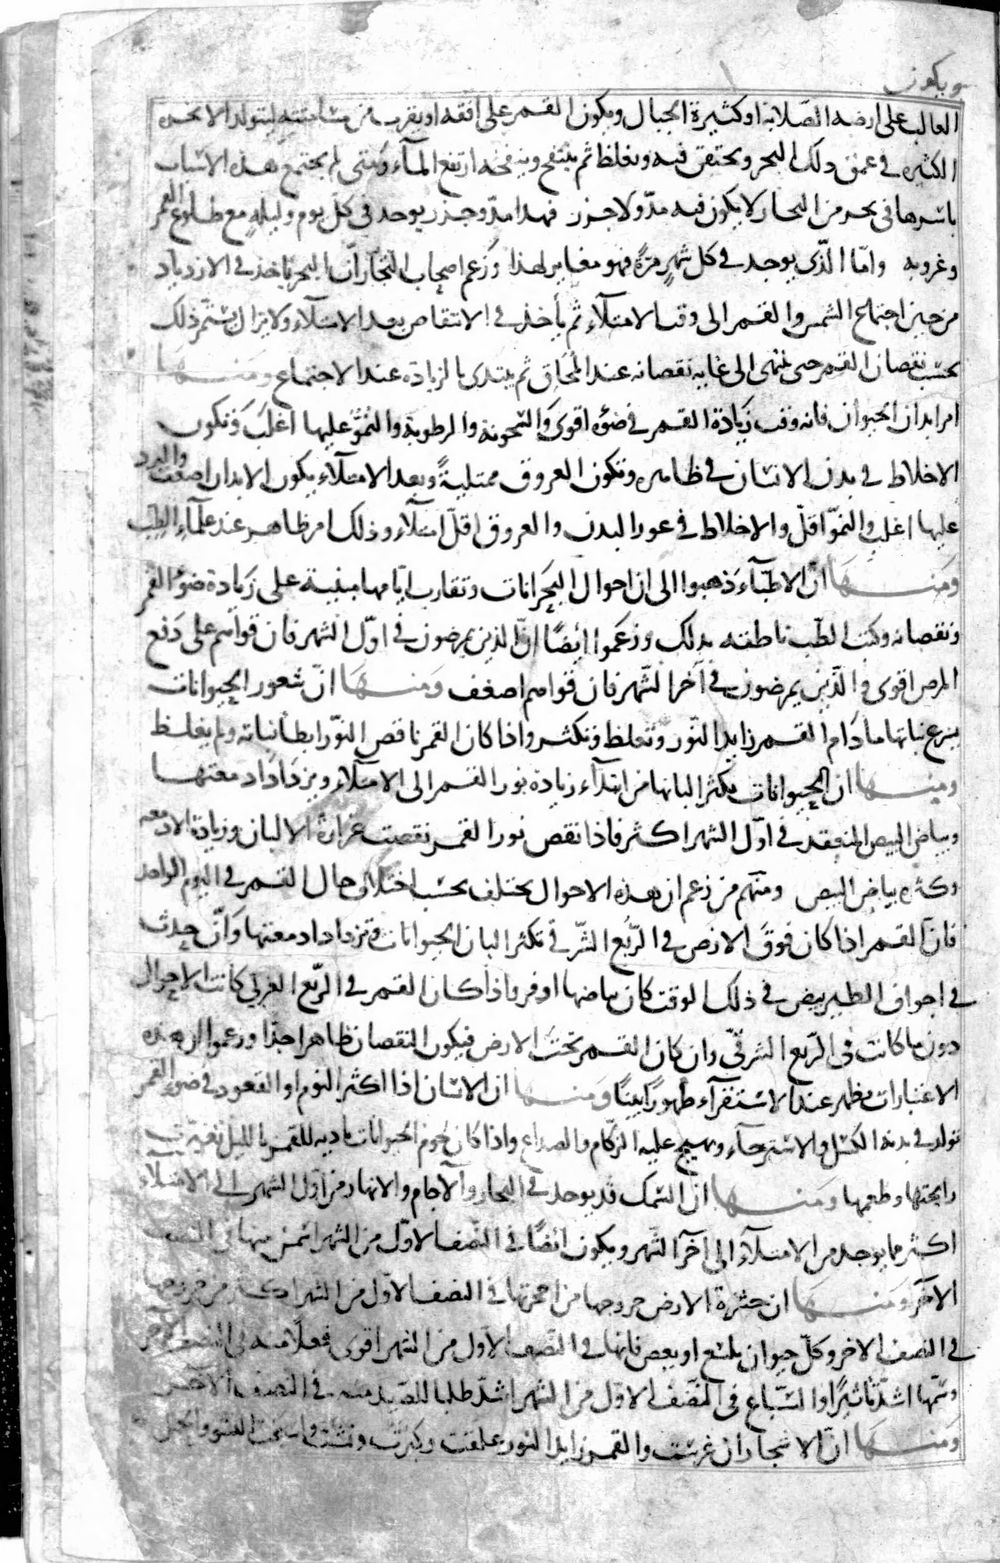 ويكون
الغالب على ارضه الصلابة او كثيرة الجبال ويكون القمر على افقه او بقرب من مسامتته ليتولد الابخرة
الكثيرة في عمق ذلك البحر ويحتقن فيه ويغلظ ثم ينتفخ وينفخه ارتفع الماء ومتى لم يجتمع هذه الاسباب
باسرها في بحر من البحار لا يكون فيه مدّ ولا جزر فهذا مدّ وجزر يوجد في كل يوم وليلة مع طلوع القمر
وغروبه واما الذي يوجد في كل شهر مرة فهو مغاير لهذا وزعم اصحاب التجار ان البحر ياخذ في الازدياد
من حين اجتماع الشمس والقمر الى وقت الامتلاء ثم يأخذ في الانتقاص بعد الامتلاء ولا يزال يستمر ذلك
بحسب نقصان القمر حتى ينتهي الى غاية نقصانه عند المحاق ثم يبتدي بالزيادة عند الاجتماع ومنها
امر ابدان الحيوان فانه وقت زيادة القمر في ضوئه اقوى والسخونة والرطوبة والنمو عليها اغلب وتكون
الاخلاط في بدن الانسان في ظاهره وتكون العروق ممتلية وبعد الامتلاء يكون الابدان اضعف والبرد
عليها اغلب والنمو اقل والاخلاط في غور البدن والعروق اقل امتلاء وذلك امر ظاهر عند علماء الطب
ومنها ان الاطباء ذهبوا الى ان احوال البحرانات وتقارب ايامها مبنية على زيادة ضوء القمر
ونقصانه وكتب الطب ناطقة بذلك وزعموا ايضا ان الذين يمرضون في اول الشهر فان قواهم على دفع
المرض اقوى والذين يمرضون في آخر الشهر فان قواهم اضعف ومنها ان شعور الحيوانات
يسرع نباتها ما دام القمر زايد النور وتغلظ وتكثر واذا كان القمر ناقص النور ابطأ نباته ولم يغلظ
ومنها ان الحيوانات يكثر البانها من ابتداء زيادة نور القمر الى الامتلاء ويزداد ادمغتها
وبياض البيض المنعقد في اول الشهر اكثر فاذا نقص نور القمر نقصت غزارة الالبان وزيادة الادمغة
وكثرة بياض البيض ومنهم من زعم ان هذه الاحوال يختلف بحسب اختلاف حال القمر في اليوم الواحد
فان القمر اذا كان فوق الارض في الربع الشرقي تكثر البان الحيوانات وتزداد ادمغتها وان حدث
في اجواف الطير بيض في ذلك الوقت كان بياضها اوفر واذا كان القمر في الربع الغربي كانت الاحوال
دون ما كانت في الربع الشرقي وان كان القمر تحت الارض فيكون النقصان ظاهرا جدا وزعموا ان هذه
الاعتبارات يظهر عند الاستقراء ظهورا بينا ومنها ان الانسان اذا اكثر النوم او القعود في ضوء القمر
تولد في بدنه الكسل والاسترخاء ويهيج عليه الزكام والصداع واذا كان لحوم الحيوانات بادية للقمر بالليل تغيرت
رايحتها وطعمها ومنها ان السمك قد يوجد في البحار والآجام والانهار من اول الشهر الى الامتلاء
اكثر مما يوجد من الامتلاء الى آخر الشهر ويكون ايضا في النصف الاول من الشهر اسمن منها في النصف
الآخر ومنها ان حشرة الارض خروجها من اجحرتها في النصف الاول من الشهر اكثر من خروجها
في النصف الآخر وكل حيوان يلسع او يعض فانها في النصف الاول من الشهر اقوى فعلا منه في النصف الآخر
وسمها اشد تاثيرا والسباع في النصف الاول من الشهر اشد طلبا للصيد منه في النصف الاخير
ومنها ان الاشجار ان غرست والقمر زايد النور علقت وكبرت ونشت واسرعت النشو والحمل